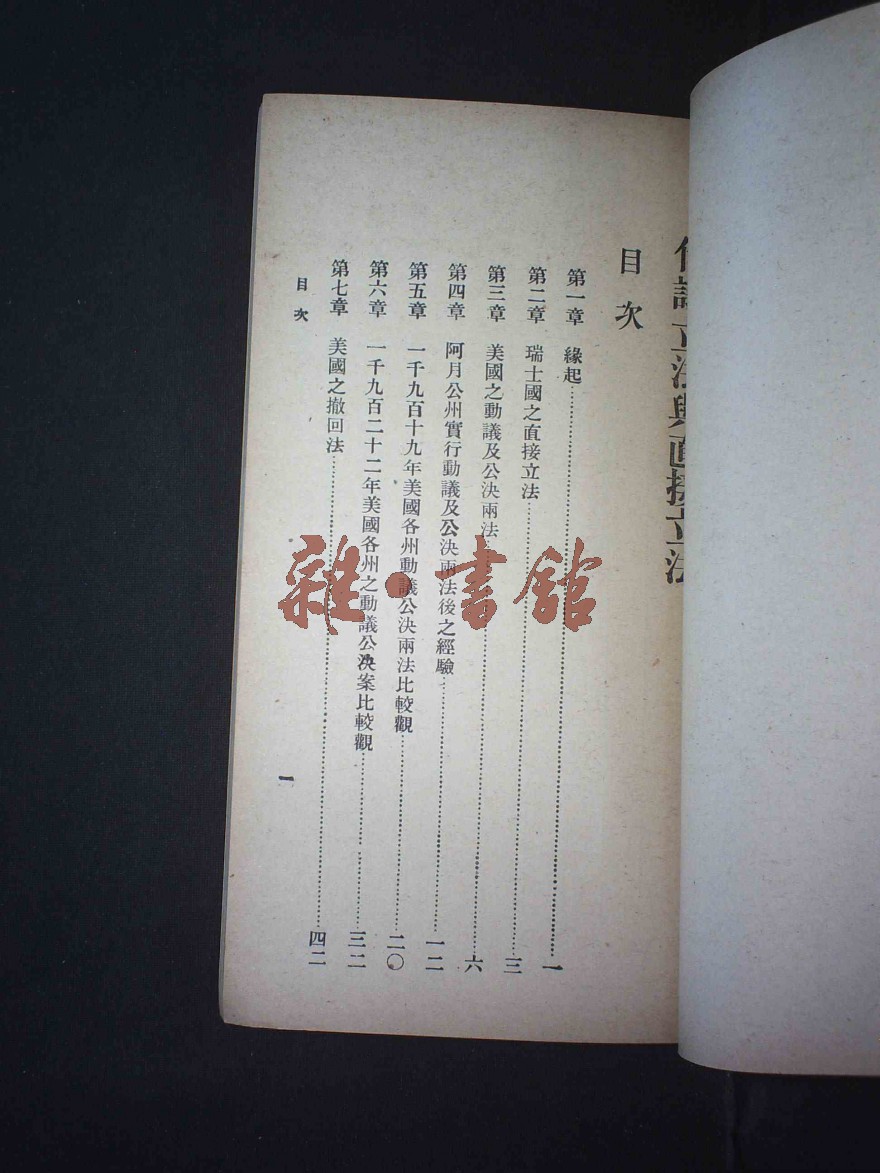 代議立法與直接立法
目次
第一章 緣起 一
第二章 瑞士國之直接立法 三
第三章 美國之動議及公決兩法 六
第四章 阿月公州實行動議及公決兩法後之經驗 一二
第五章 一千九百十九年美國各州動議公決兩法比較觀 二〇
第六章 一千九百二十二年美國各州之動議公決案比較觀 三二
第七章 美國之撤回法 四二
目次
一
雜·書館